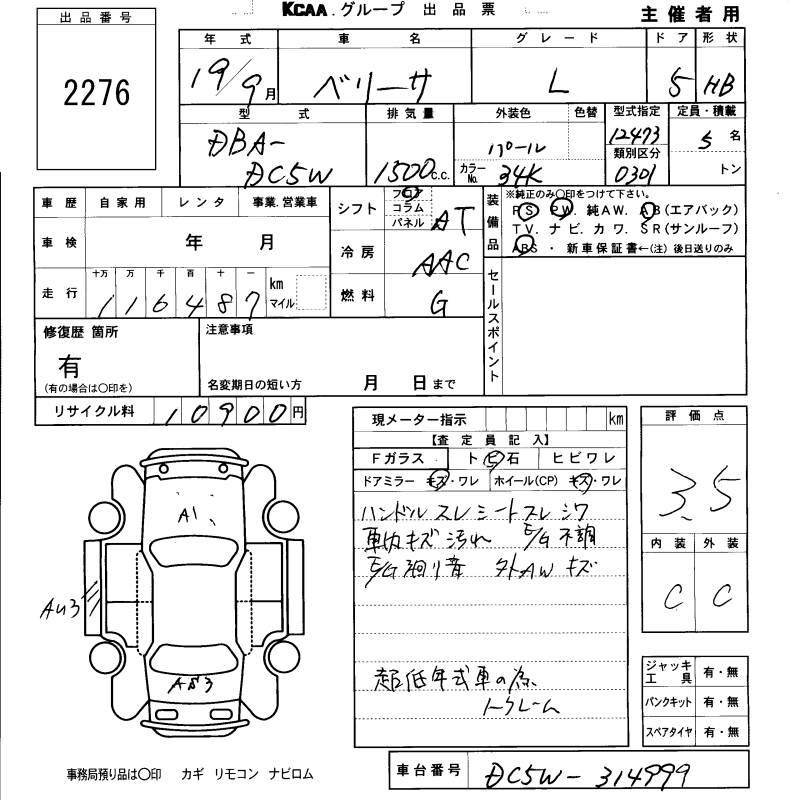 KCAA.グループ 出品票
主催者用
出品番号
2276
年式 車名 グレード ドア 形状
19/9月 ベリーサ L 5 HB
型式 排気量 外装色 色替 型式指定 定員・積載
DBA-
DC5W 1500c.c. パール 12473 5名
カラーNo. 34K 類別区分 0301 トン
車歴 自家用 レンタ 事業.営業車
シフト フロア コラム パネル AT
車検 年 月
冷房 AAC
走行 十万 万 千 百 十 一
116487 km マイル
燃料 G
装備品
※純正のみ○印をつけて下さい。
PS. PW. 純AW. AB(エアバック)
TV. ナビ. カワ. SR(サンルーフ)
ABS・新車保証書←(注)後日送りのみ
セールスポイント
修復歴 箇所
有
(有の場合は○印を)
注意事項
名変期日の短い方 月 日まで
リサイクル料 10900円
現メーター指示 km
【査定員記入】
Fガラス ト ビ 石 ヒビワレ
ドアミラー キズ・ワレ ホイール(CP) キズ・ワレ
ハンドル スレ シートスレ シワ
車内キズ 汚れ E/G不調
E/G廻り音 外AW キズ
超低年式車の為、
ノークレーム
評価点
3.5
内装 外装
C C
A1
AU3
ジャッキ工具 有・無
パンクキット 有・無
スペアタイヤ 有・無
事務局預り品は○印 カギ リモコン ナビロム
車台番号 DC5W-314999